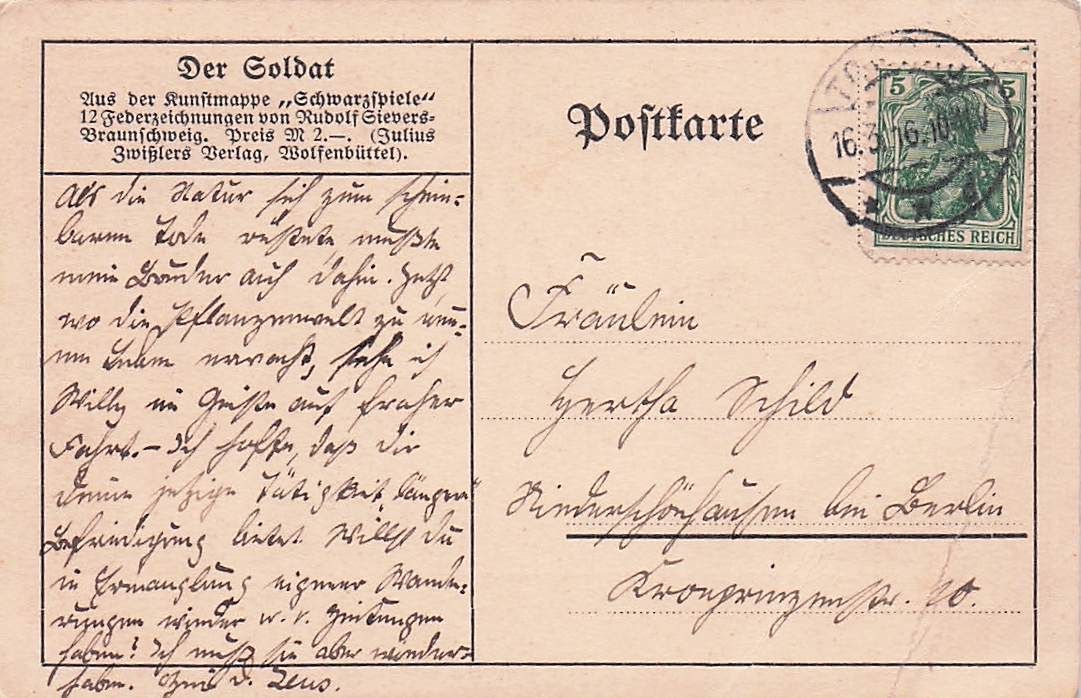 Der Soldat
Aus der Kunstmappe „Schwarzspiele“
12 Federzeichnungen von Rudolf Sievers-
Braunschweig. Preis M 2.—. (Julius
Zwißlers Verlag, Wolfenbüttel).
Postkarte
16.3.16.10
5 5
DEUTSCHES REICH
Als die Natur sich zum schein-
baren Tode rüstete mußte
mein Bruder auch dahin. Jetzt,
wo die Pflanzenwelt zu neu-
em Leben erwacht, sehe ich
Willy im Geiste auf froher
Fahrt. – Ich hoffe, daß dir
Deine jetzige Tätigkeit längere
Befriedigung bietet. Willst du
in Ermanglung eigener Wande-
rungen wieder w. v. Zeitungen
haben? Ich muß sie aber wieder-
haben. d. Zeus.
Fräulein
Hertha Schild
Niederschönhausen bei Berlin
Kronprinzenstr. 20.